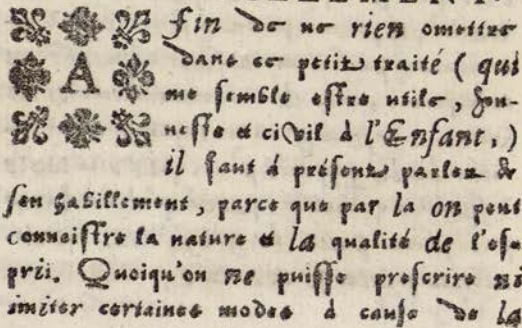 Afin de ne rien omettre
dans ce petit traité ( qui
me semble estre utile, hon-
neste & civil à l'Enfant, )
il faut à présent parler de
son habillement, parce que par la on peut
connoistre la nature & la qualité de l'es-
prit. Quoiqu'on ne puisse prescrire ni
imiter certaines modes à cause de la